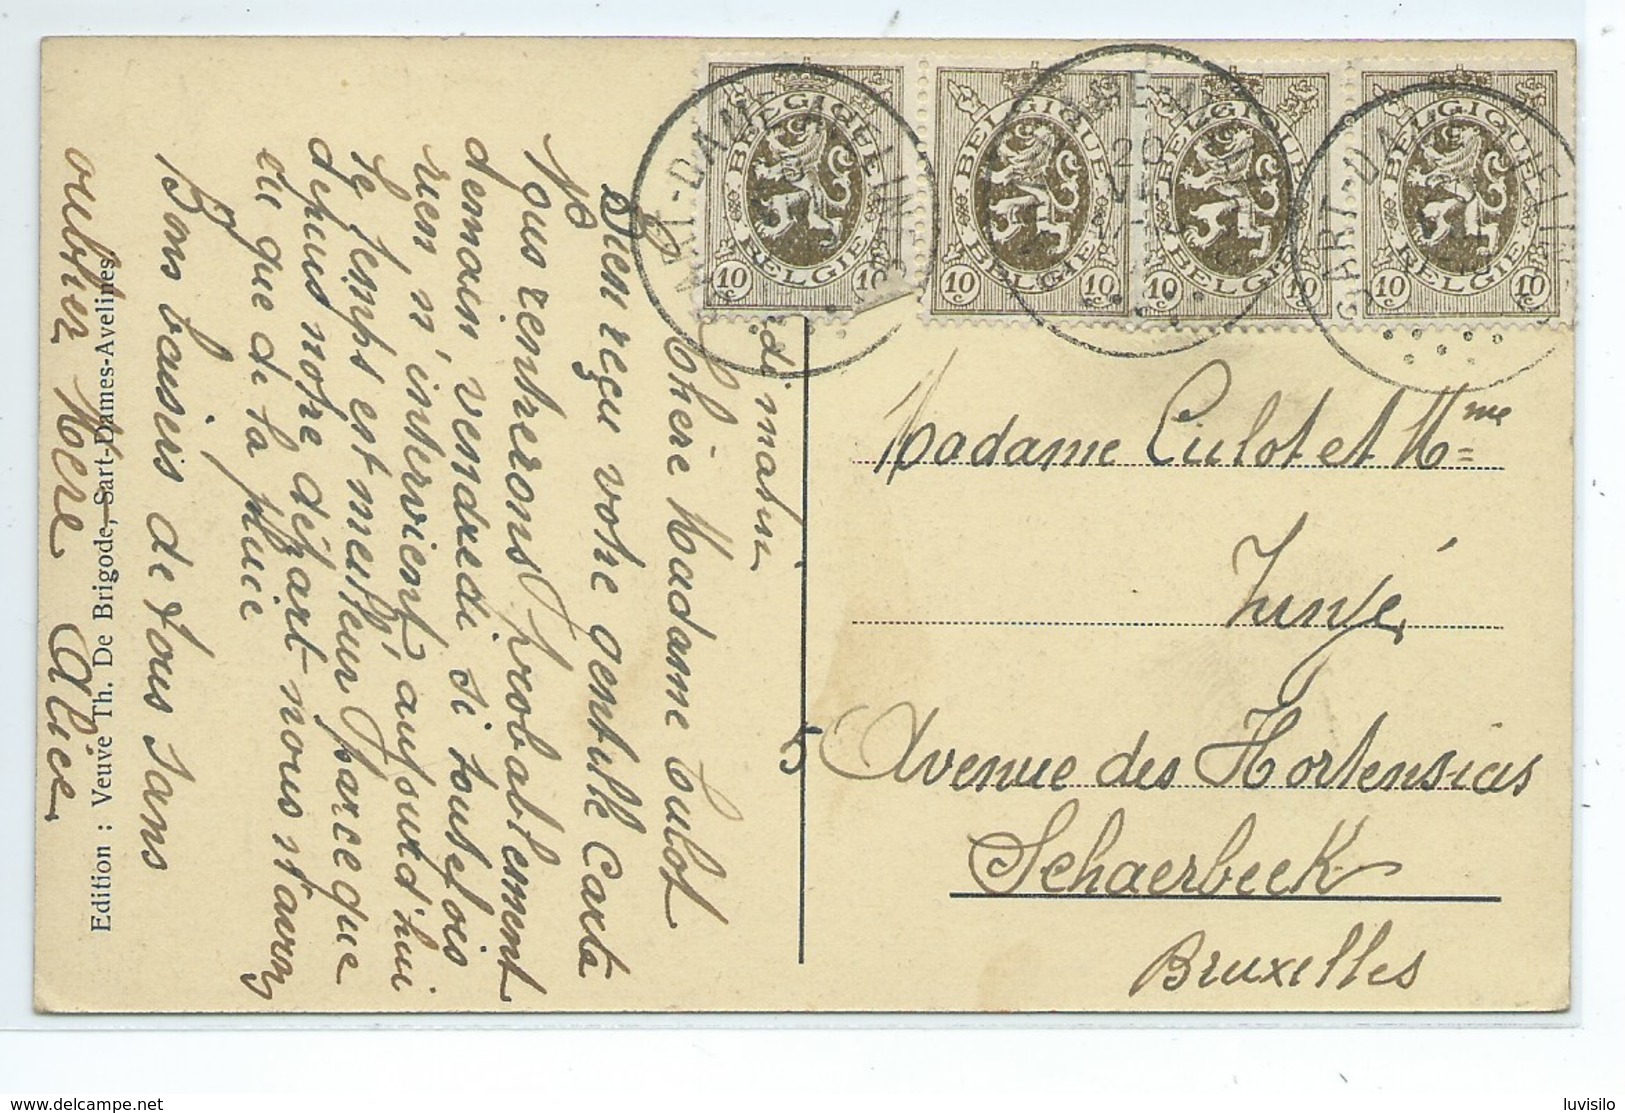 di matin
Chère Madame Culot
Bien reçu votre gentille carte
Nous rentrerons probablement
demain vendredi, si toutefois
rien n'intervient, aujourd'hui
le temps est meilleur parce que
depuis notre départ nous n'avons
eu que de la pluie
Bons baisers de tous sans
oublier Mère Alice
Edition : Veuve Th. De Brigode, Sart-Dames-Avelines
BELGIQUE
BELGIE
10c
10c
BELGIQUE
BELGIE
10c
10c
BELGIQUE
BELGIE
10c
10c
BELGIQUE
BELGIE
10c
10c
Madame Culot et Mme
Junjé
5 Avenue des Hortensias
Schaerbeek
Bruxelles
www.delcampe.net
luvisilo